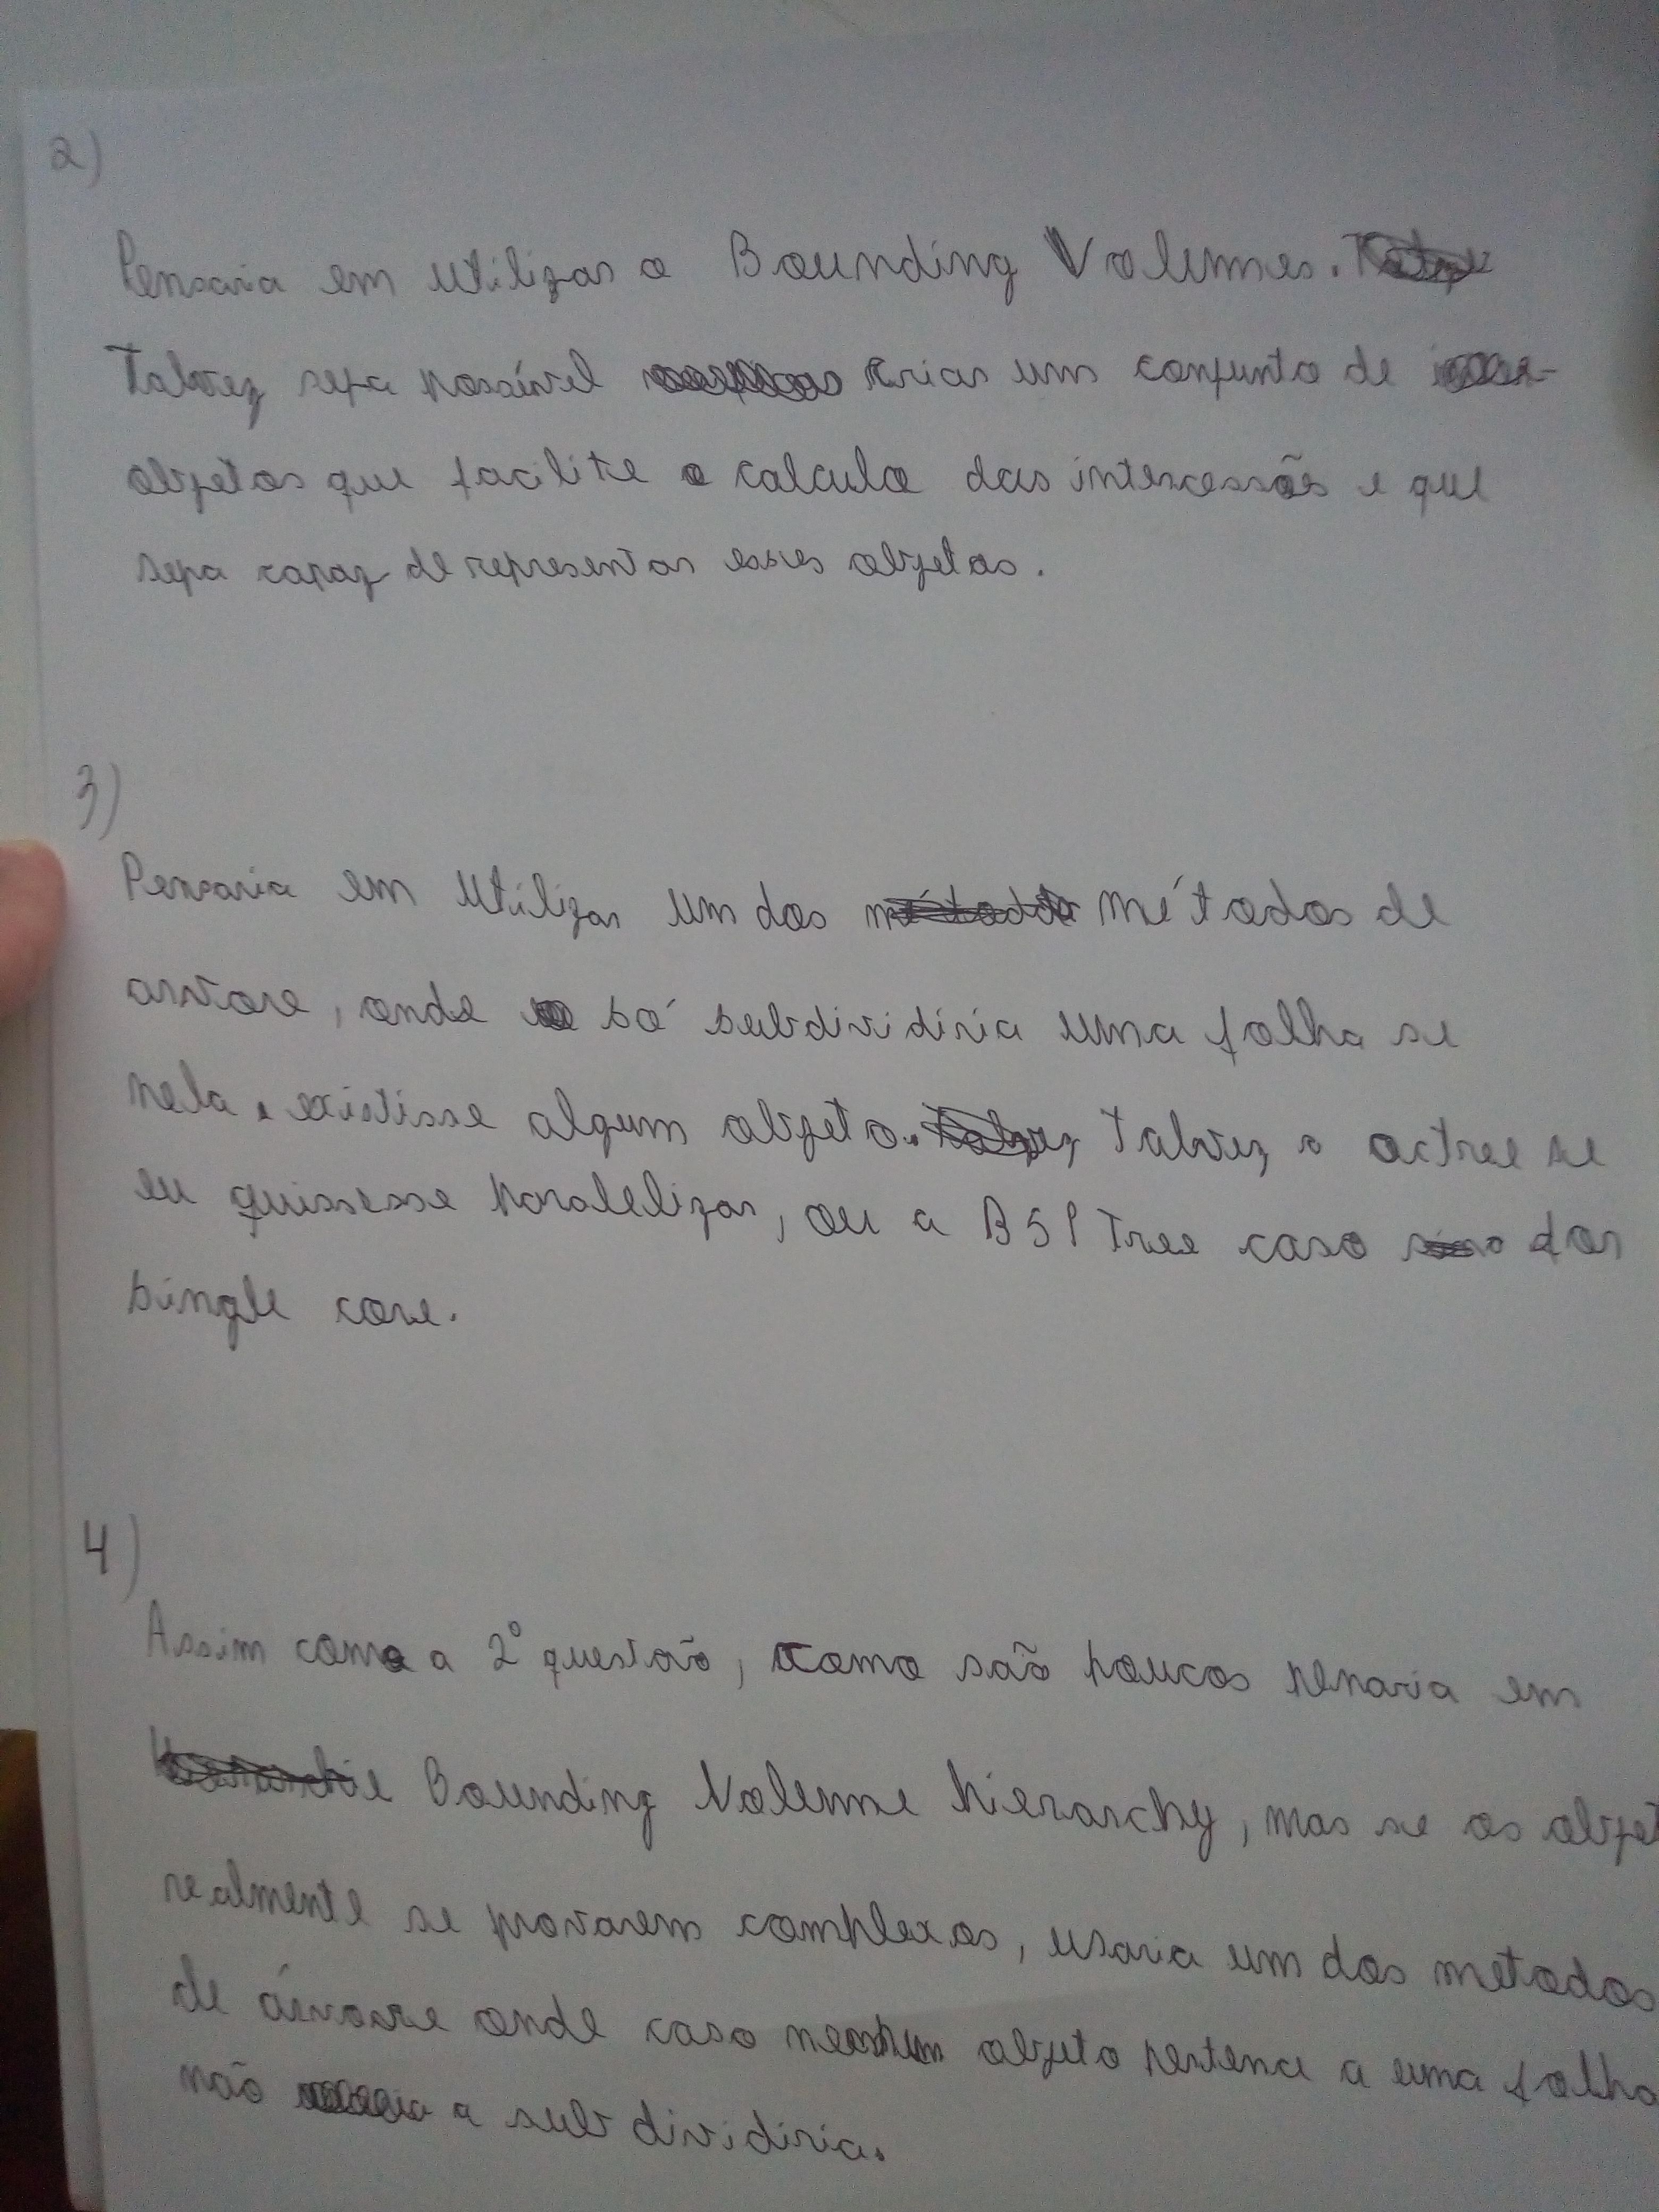 2)
Pensaria em utilizar o Bounding Volumes.
Talvez seja possível criar um conjunto de
objetos que facilite o calculo das intercessões e que
seja capaz de representar esses objetos.
3)
Pensaria em utilizar um dos métodos de
arvore, onde só subdividiria uma folha se
nela existisse algum objeto. Talvez o octree se
eu quissesse paralelizar, ou a BSP Tree caso for
single core.
4)
Assim como a 2º questão, como são poucos penaria em
Bounding Volume hierarchy, mas se os objet
realmente se provarem complexos, usaria um dos metodos
de árvore onde caso nenhum objeto pertence a uma folha
não a subdividiria.